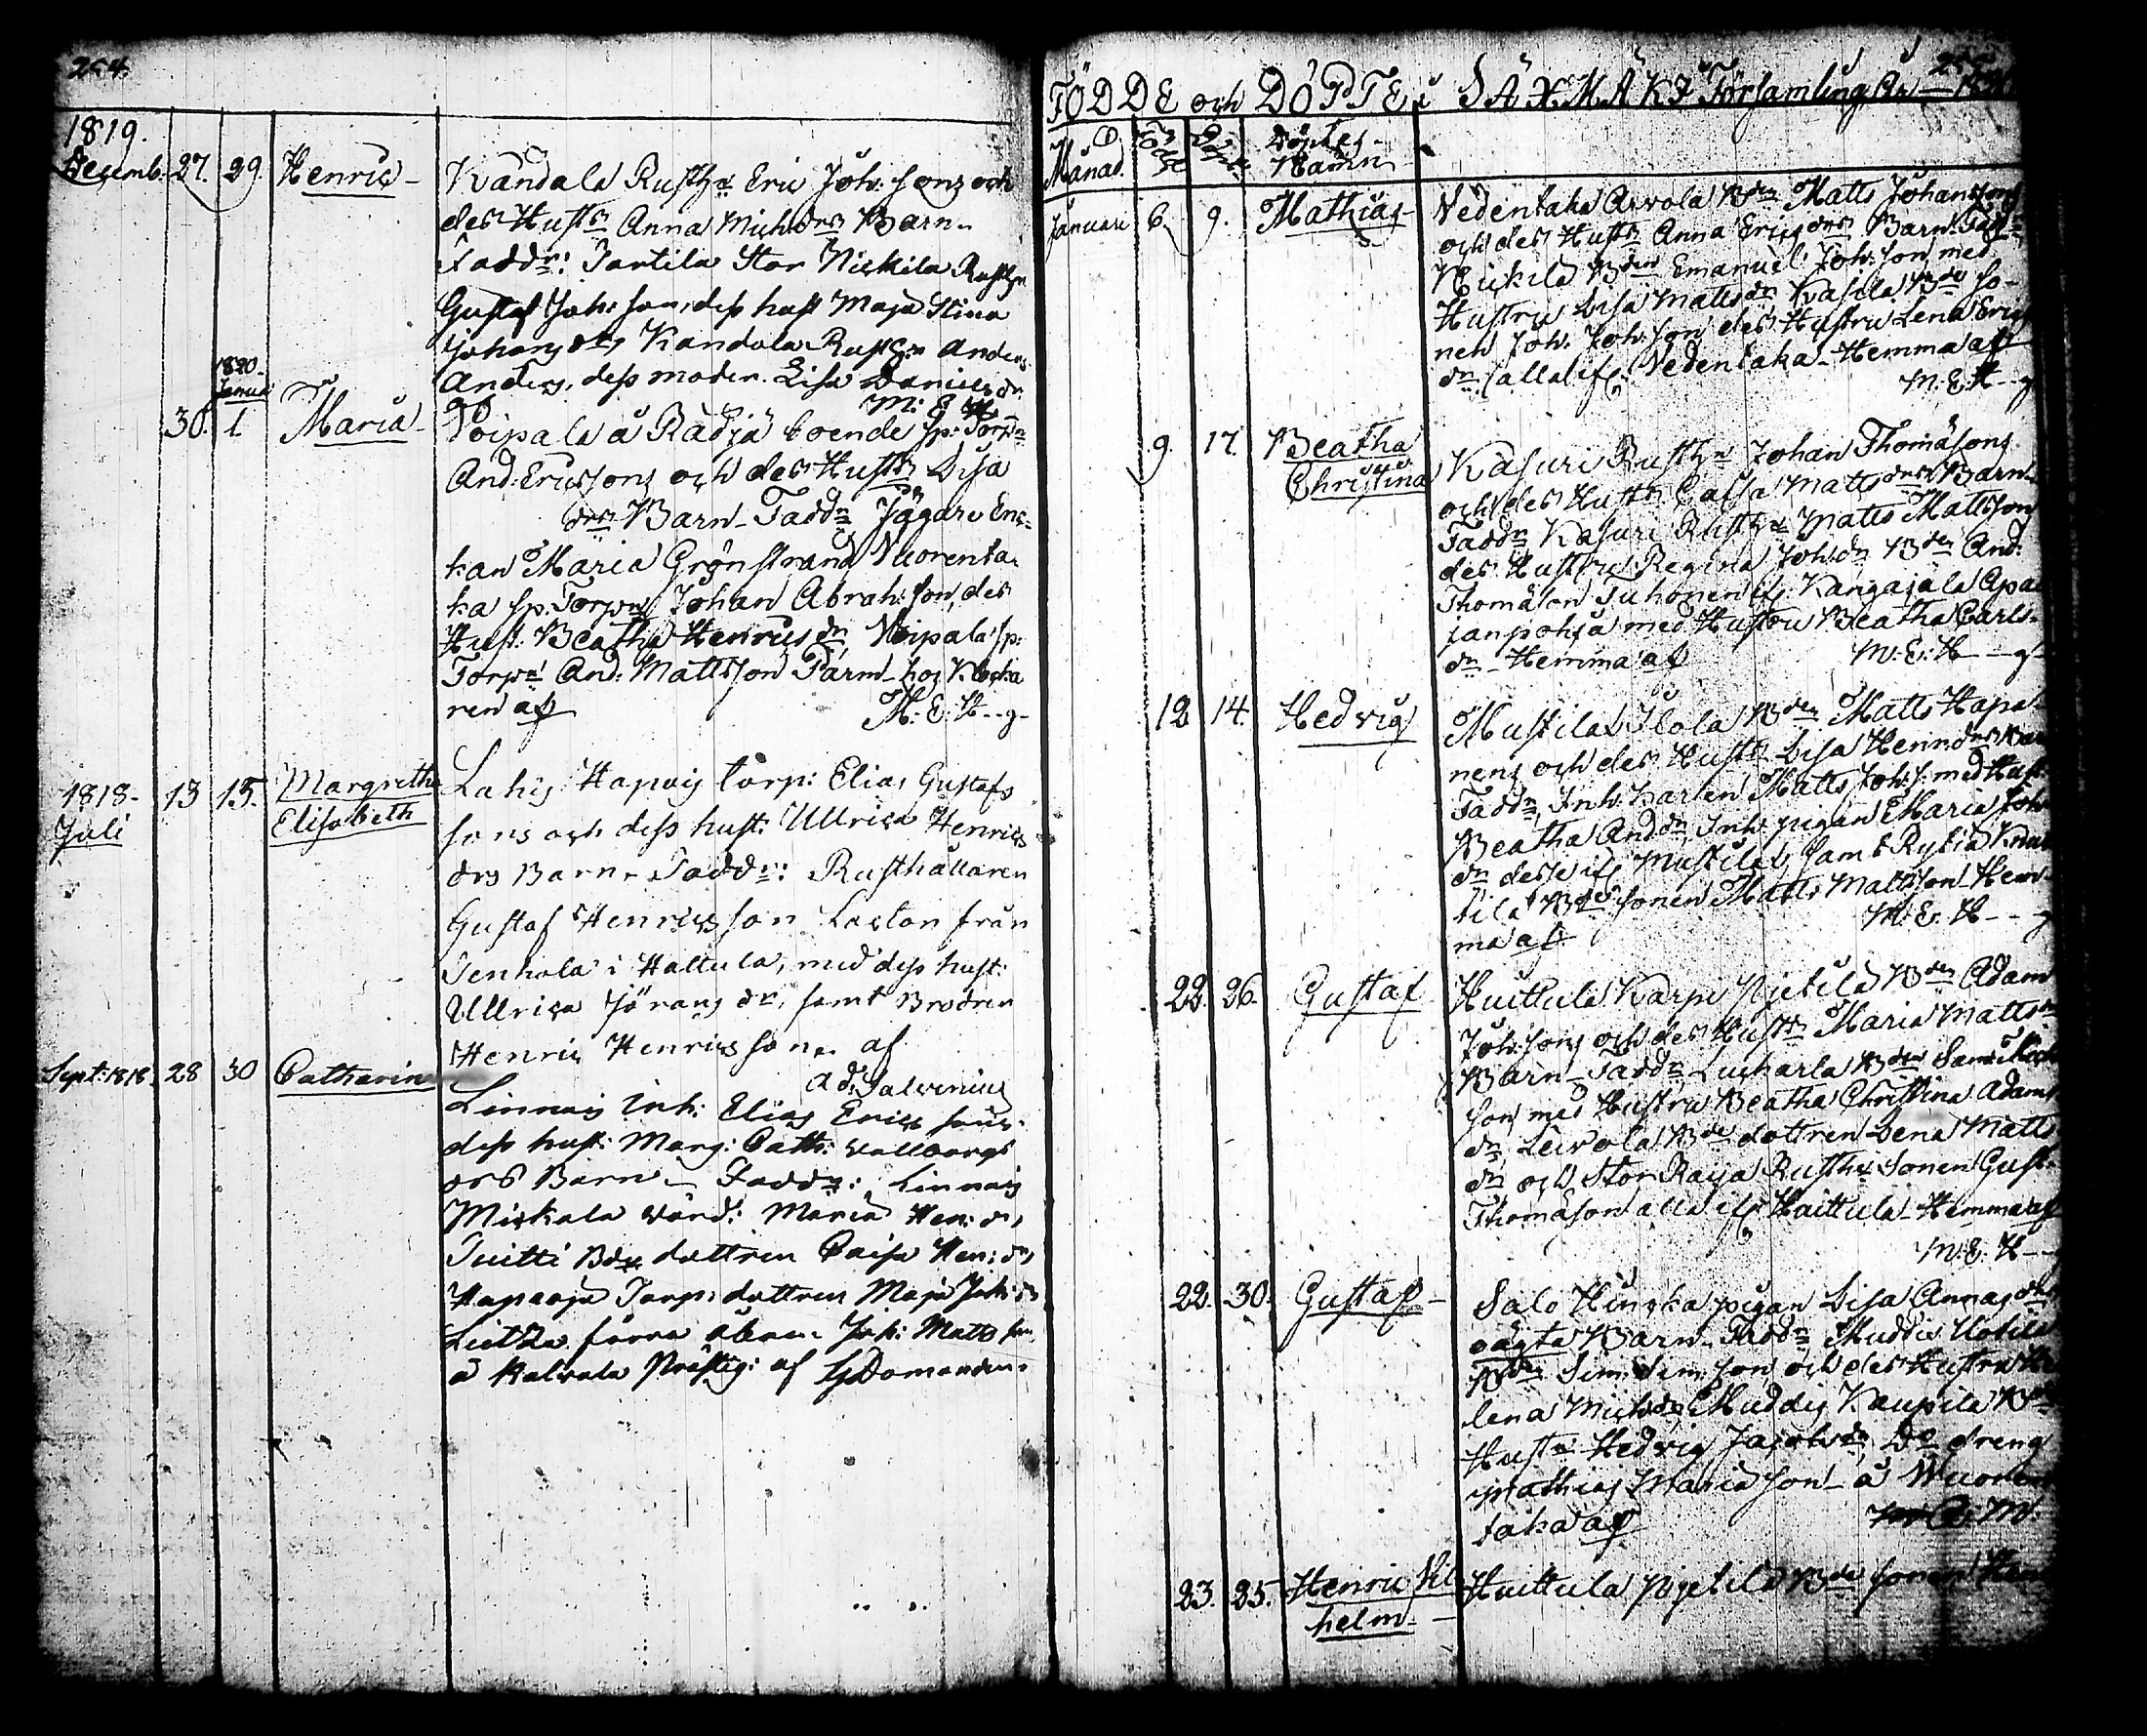 254.
1819.
Decemb. 27. 29. Henric
Kandala Rusth. Eric Joh: sons och
des Hustr. Anna Mich:drs Barn
Faddr: Tartila Stor Nickila Rusth.
Gustaf Joh: son, dess hust Maja Stina
Johans dr, Kandala Rusth. Anders
Anders. dess moder. Lisa Daniels dr.
M: E: H
1820.
Januar
30. 1. Maria
Voipala å Rädjä boende sp: Torpn
And: Ericssons och des Hustr Lisa
drs Barn - Faddr Jägare Enc-
kan Maria Grönstrand Vuorenta-
ka sp. Torpn Johan Abrah: son, des
Hust. Beatha Henrics dr, Voipala sp:
Torpn And: Mattsson Pärm hos Klocka
ren af M: E: H--g-
1818. Juli 13 15. Margretha
Elisabeth
Lahis Hapois torp: Elias Gustafs
sons och dess hust: Ullrica Henrics
drs Barn - Faddr: Rusthållaren
Gustaf Henricsson Laxton från
Tenhola i Hattula, med dess hust:
Ullrica Jörans dr, samt Brodren
Henric Henricsson. af
Ad: Salvenius
Sept: 1818. 28 30 Catharin
Linnais Inh: Elias Erics sons
dess hust: Marg: Cath: Vallborgs
drs Barn - Faddr: Linnais
Mickala värd: Maria Hen: dr,
Tuitti Bde dottren Caisa Hen: dr,
Hapaoja Torp: dottren Maja Joh: dr
Lietza förra åbon: Joh: Matts son
å Kalvala Prästg: af G Domander.
FÖDDE och DÖPTE i SÄXMÄKI Församling År
Månad. Född Döpt Döptes
Namn
Januari 6. 9. Mathias
Vedentaka Arvola Bden Matts Johanssons
och des Hustr Anna Ericsdrs Barn Faddr
Nickila Bden Emanuel Joh: son med
Hustru Lisa Mattsdr Kasila Bde so-
nen Joh: Joh: son des Hustru Lena Erics
dr (alla ifr. Vedentaka - Hemma af
M: E: H--g
9. 17. Beatha
Christina
Kasuri Rusth. Johan Thomasons
och des Hustr Caisa Matts drs Barn
Faddr Kasuri Rusth. Matts Mattsson
des Hustru Regina Joh:dr Bden And:
Thomason Tuhonen ifr. Kangasala Apa
janpohja med Hustru Beatha Carls-
dr - Hemma af M: E: H--g-
12 14. Hedvig
Mustila Ilola Bden Matts Hapa-
nens och des Hustr Lisa Henr:drs Bar
Faddr, Inh: karlen Matts Joh: s: med Hust:
Beatha And:dr, Inh: pigan Maria Joh:
dr desse ifr Mustila, samt Rytiä Knu
tila Bde sonen Matts Mattsson - Hem
ma af M: E: H---g
22. 26. Gustaf
Huittula Karpi Pjetila Bden Adam
Joh: sons och des Hustr Maria Matts dr
Barn - Faddr Luckarla Bden Sam: Mich
son med Hustru Beatha Christina Adams
dr, Leivola Bde dottren Lena Matts
dr och Stor Raya Rusth. Sonen Gust:
Thomason alla ifr Huittula - Hemma af
M: E: H--
22. 30. Gustaf
Salo Hinska pigan Lisa Annas drs
oägta Barn. Faddr Muddis Uotila
Bden Sim: Sim: son och des Hustru He
lena Mich:dr, Muddis Kaupila Bde
Hustr Hedvig Jacobs dr, Do dreng
Mathias Mariason - å Wuoren
taka af
23. 25. Henric Vil
helm
Huittula Pjetila Bde sonen Hen